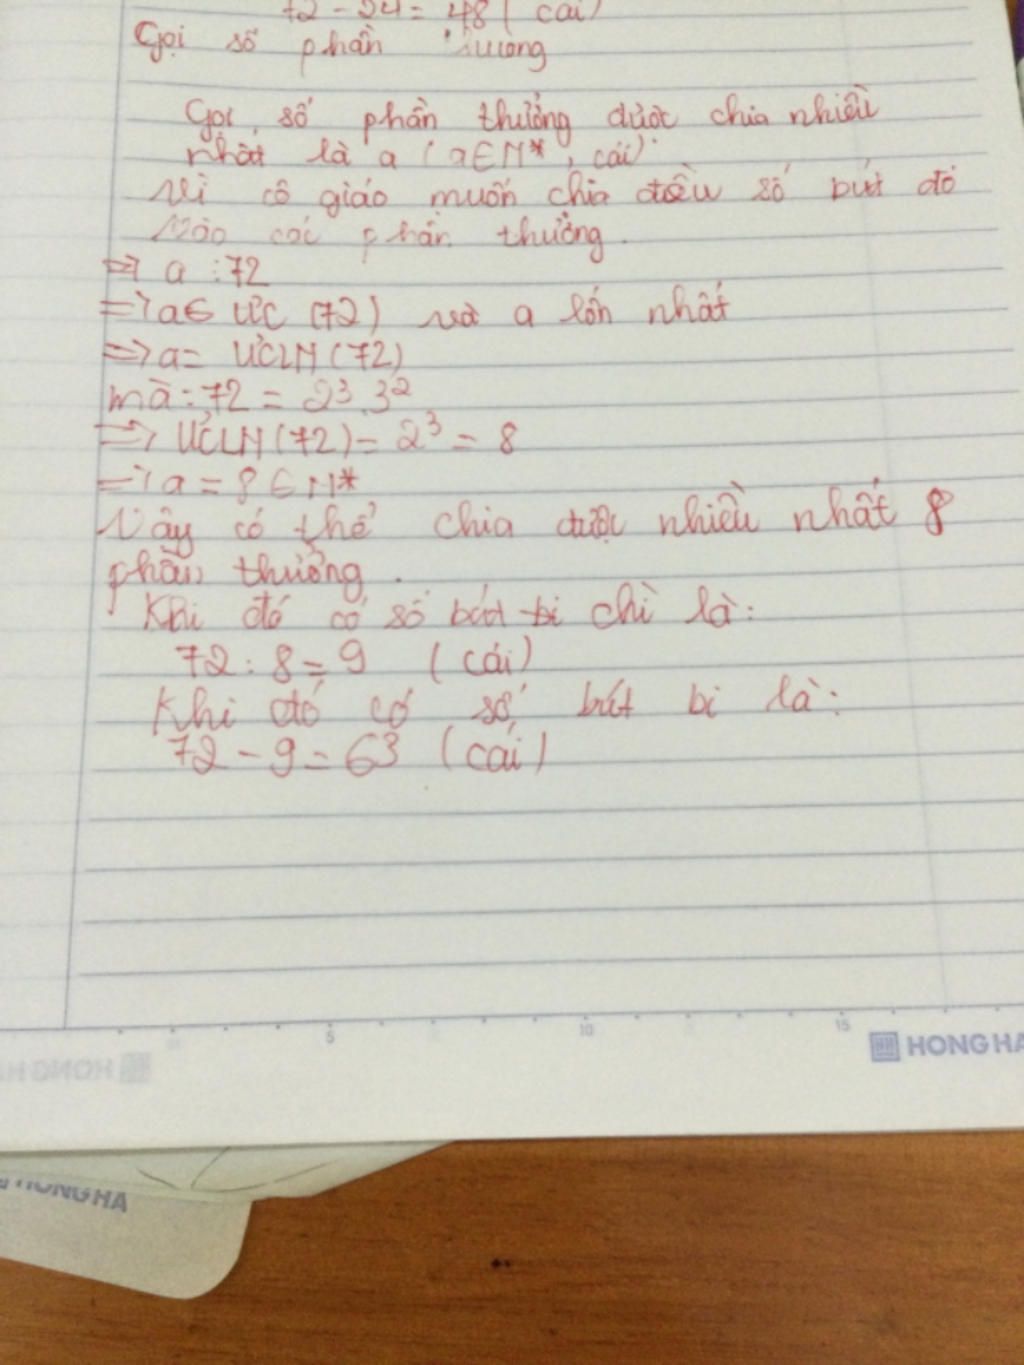 72 - 24 = 48 ( cái)
Gọi số phần thưởng
Gọi số phần thưởng được chia nhiều
nhất là a ( a∈N*, cái)
Vì cô giáo muốn chia đều số bút đó
vào các phần thưởng.
=> a : 72
=> a∈ ƯC (72) và a lớn nhất
=> a = ƯCLN (72)
mà : 72 = 2³.3²
=> ƯCLN (72) = 2³ = 8
=> a = 8 ∈ N*
Vậy có thể chia được nhiều nhất 8
phần thưởng.
Khi đó có số bút bi chì là:
72 : 8 = 9 ( cái)
Khi đó có số bút bi là:
72 - 9 = 63 ( cái)
5 10 15
HONG HA
HONG HA
HONG HA